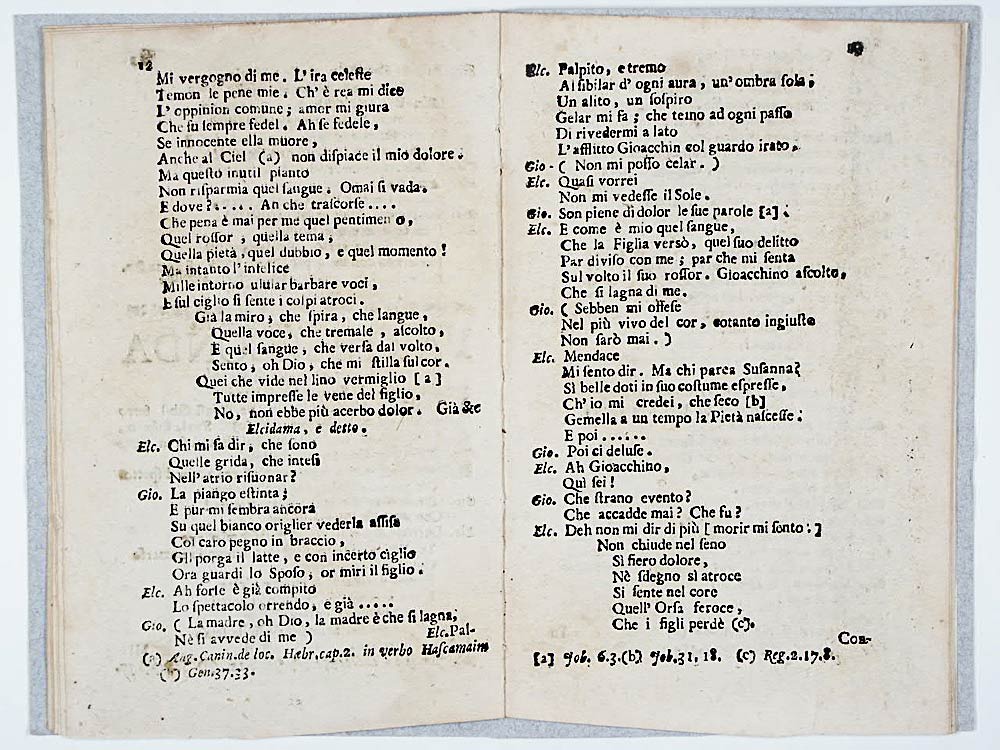 12
Mi vergogno di me. L'ira celeste
Temon le pene mie. Ch'è rea mi dice
L'oppinion comune; amor mi giura
Che fu sempre fedel. Ah se fedele,
Se innocente ella muore,
Anche al Ciel (a) non dispiace il mio dolore.
Ma questo inutil pianto
Non risparmia quel sangue. Omai si vada.
E dove?..... An che trascorse....
Che pena è mai per me quel pentimen o,
Quel rossor, quella tema,
Quella pietà, quel dubbio, e quel momento!
Ma intanto l'infelice
Mille intorno ulular barbare voci,
E sul ciglio si sente i colpi atroci.
Già la miro, che spira, che langue,
Quella voce, che tremale, ascolto,
E quel sangue, che versa dal volto,
Sento, oh Dio, che mi stilla sul cor.
Quei che vide nel lino vermiglio [a]
Tutte impresse le vene del figlio,
No, non ebbe più acerbo dolor. Già &c
Elcidama, e detto.
Elc. Chi mi sa dir, che sono
Quelle grida, che intesi
Nell'atrio risuonar?
Gio. La piango estinta;
E pur mi sembra ancora
Su quel bianco origlier vederla assisa
Col caro pegno in braccio,
Gli porga il latte, e con incerto ciglio
Ora guardi lo Sposo, or miri il figlio.
Elc. Ah forse è già compito
Lo spettacolo orrendo, e già .....
Gio. ( La madre, oh Dio, la madre è che si lagna,
Nè si avvede di me ) Elc. Pal-
(a) Ang. Canin. de loc. Hæbr. cap. 2. in verbo Hascamaim
(b) Gen. 37.33.
13
Elc. Palpito, e tremo
Al sibilar d'ogni aura, un'ombra sola,
Un alito, un sospiro
Gelar mi fa; che temo ad ogni passo
Di rivedermi a lato
L'afflitto Gioacchin col guardo irato.
Gio- ( Non mi posso celar. )
Elc. Quasi vorrei
Non mi vedesse il Sole.
Gio. Son piene di dolor le sue parole [a].
Elc. E come è mio quel sangue,
Che la Figlia versò, quel suo delitto
Par diviso con me; par che mi senta
Sul volto il suo rossor. Gioacchino ascolto,
Che si lagna di me.
Gio. ( Sebben mi offese
Nel più vivo del cor, cotanto ingiusto
Non sarò mai. )
Elc. Mendace
Mi sento dir. Ma chi parea Susanna?
Sì belle doti in suo costume espresse,
Ch'io mi credei, che seco [b]
Gemella a un tempo la Pietà nascesse.
E poi ......
Gio. Poi ci deluse.
Elc. Ah Gioacchino,
Quì sei!
Gio. Che strano evento?
Che accadde mai? Che fu?
Elc. Deh non mi dir di più [ morir mi sento.]
Non chiude nel seno
Sì fiero dolore,
Nè sdegno sì atroce
Si sente nel core
Quell'Orsa feroce,
Che i figli perdè (c).
Con-
[a] Job. 6.3. (b) Job. 31. 18. (c) Reg. 2. 17. 8.